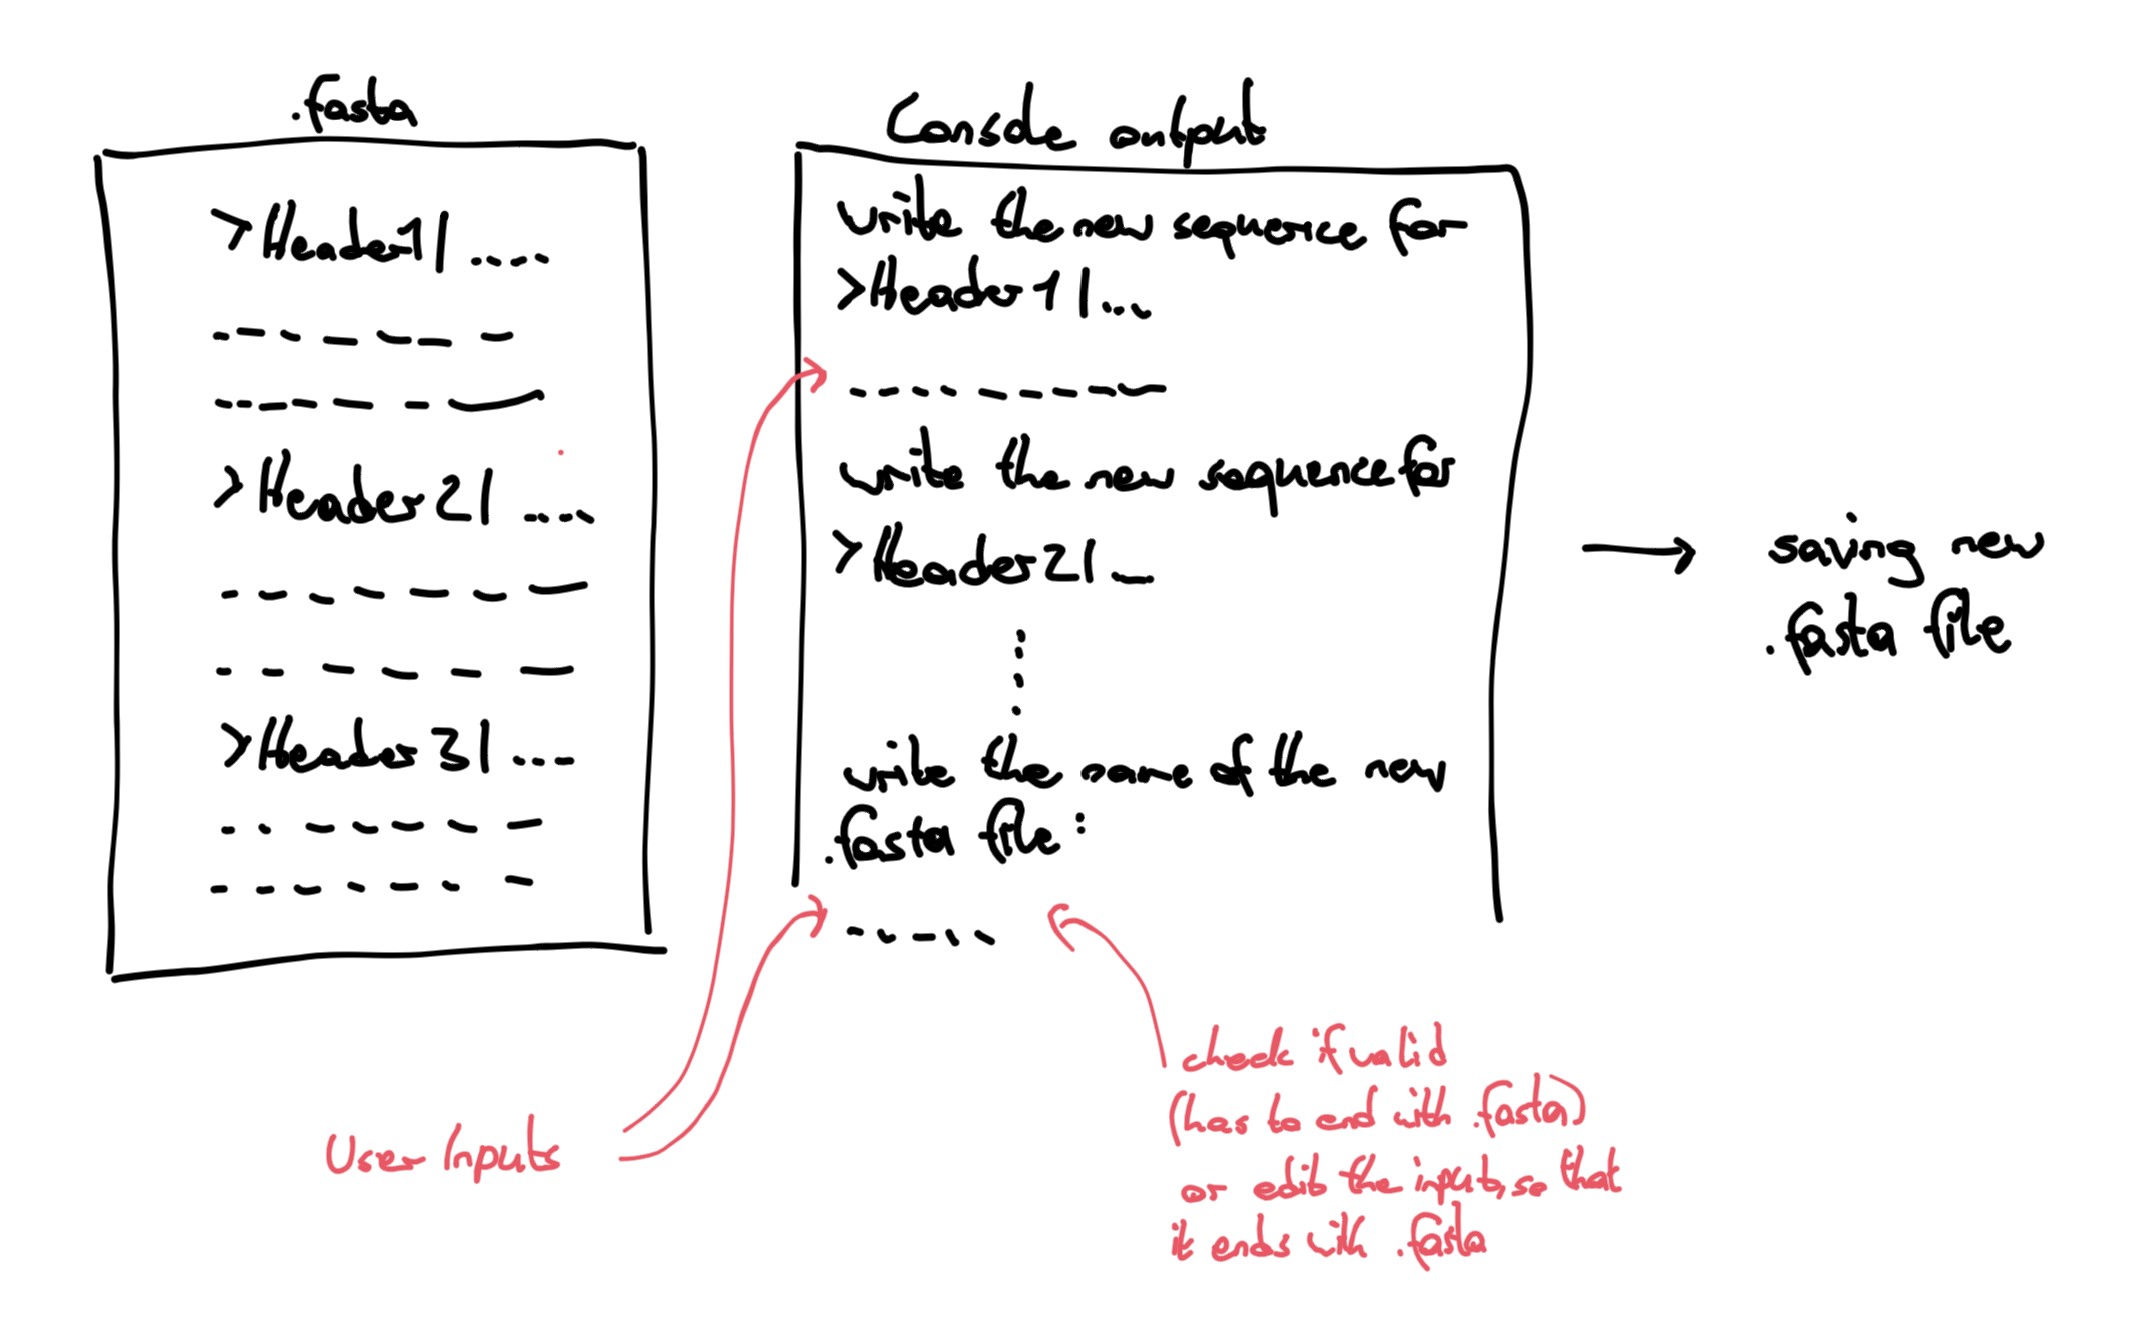 .fasta
>Header1| ....
>Header2| ....
>Header3| ....
Console output
write the new sequence for
>Header1|...
write the new sequence for
>Header2|...
write the name of the new
.fasta file:
saving new
.fasta file
User Inputs
check if valid
(has to end with .fasta)
or edit the input, so that
it ends with .fasta